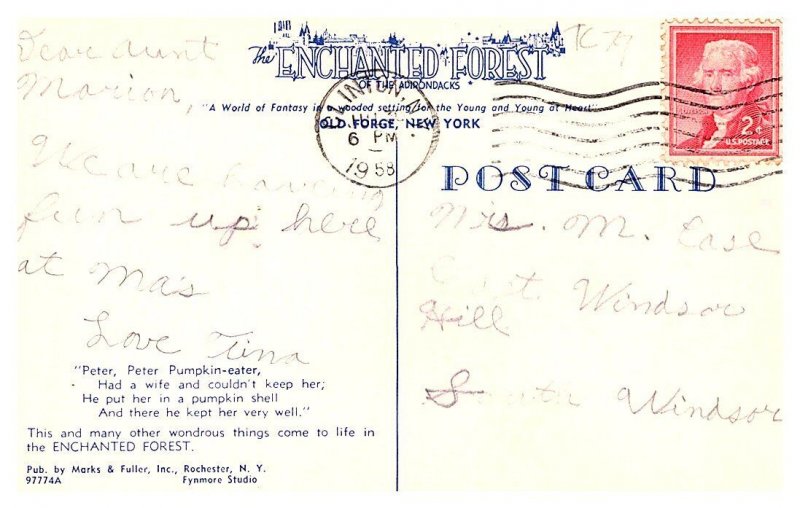 The ENCHANTED FOREST
OF THE ADIRONDACKS
"A World of Fantasy in a wooded setting for the Young and Young at Heart"
OLD FORGE, NEW YORK
CLINTON, N.Y.
6 PM
1958
2¢
U.S. POSTAGE
POST CARD
Dear Aunt
Marion,
We are having
fun up here
at Ma's
Love Tina
"Peter, Peter Pumpkin-eater,
Had a wife and couldn't keep her;
He put her in a pumpkin shell
And there he kept her very well."
This and many other wondrous things come to life in
the ENCHANTED FOREST.
Pub. by Marks & Fuller, Inc., Rochester, N. Y.
97774A Fynmore Studio
Mrs. M. Case
East Windsor
Hill
South Windsor